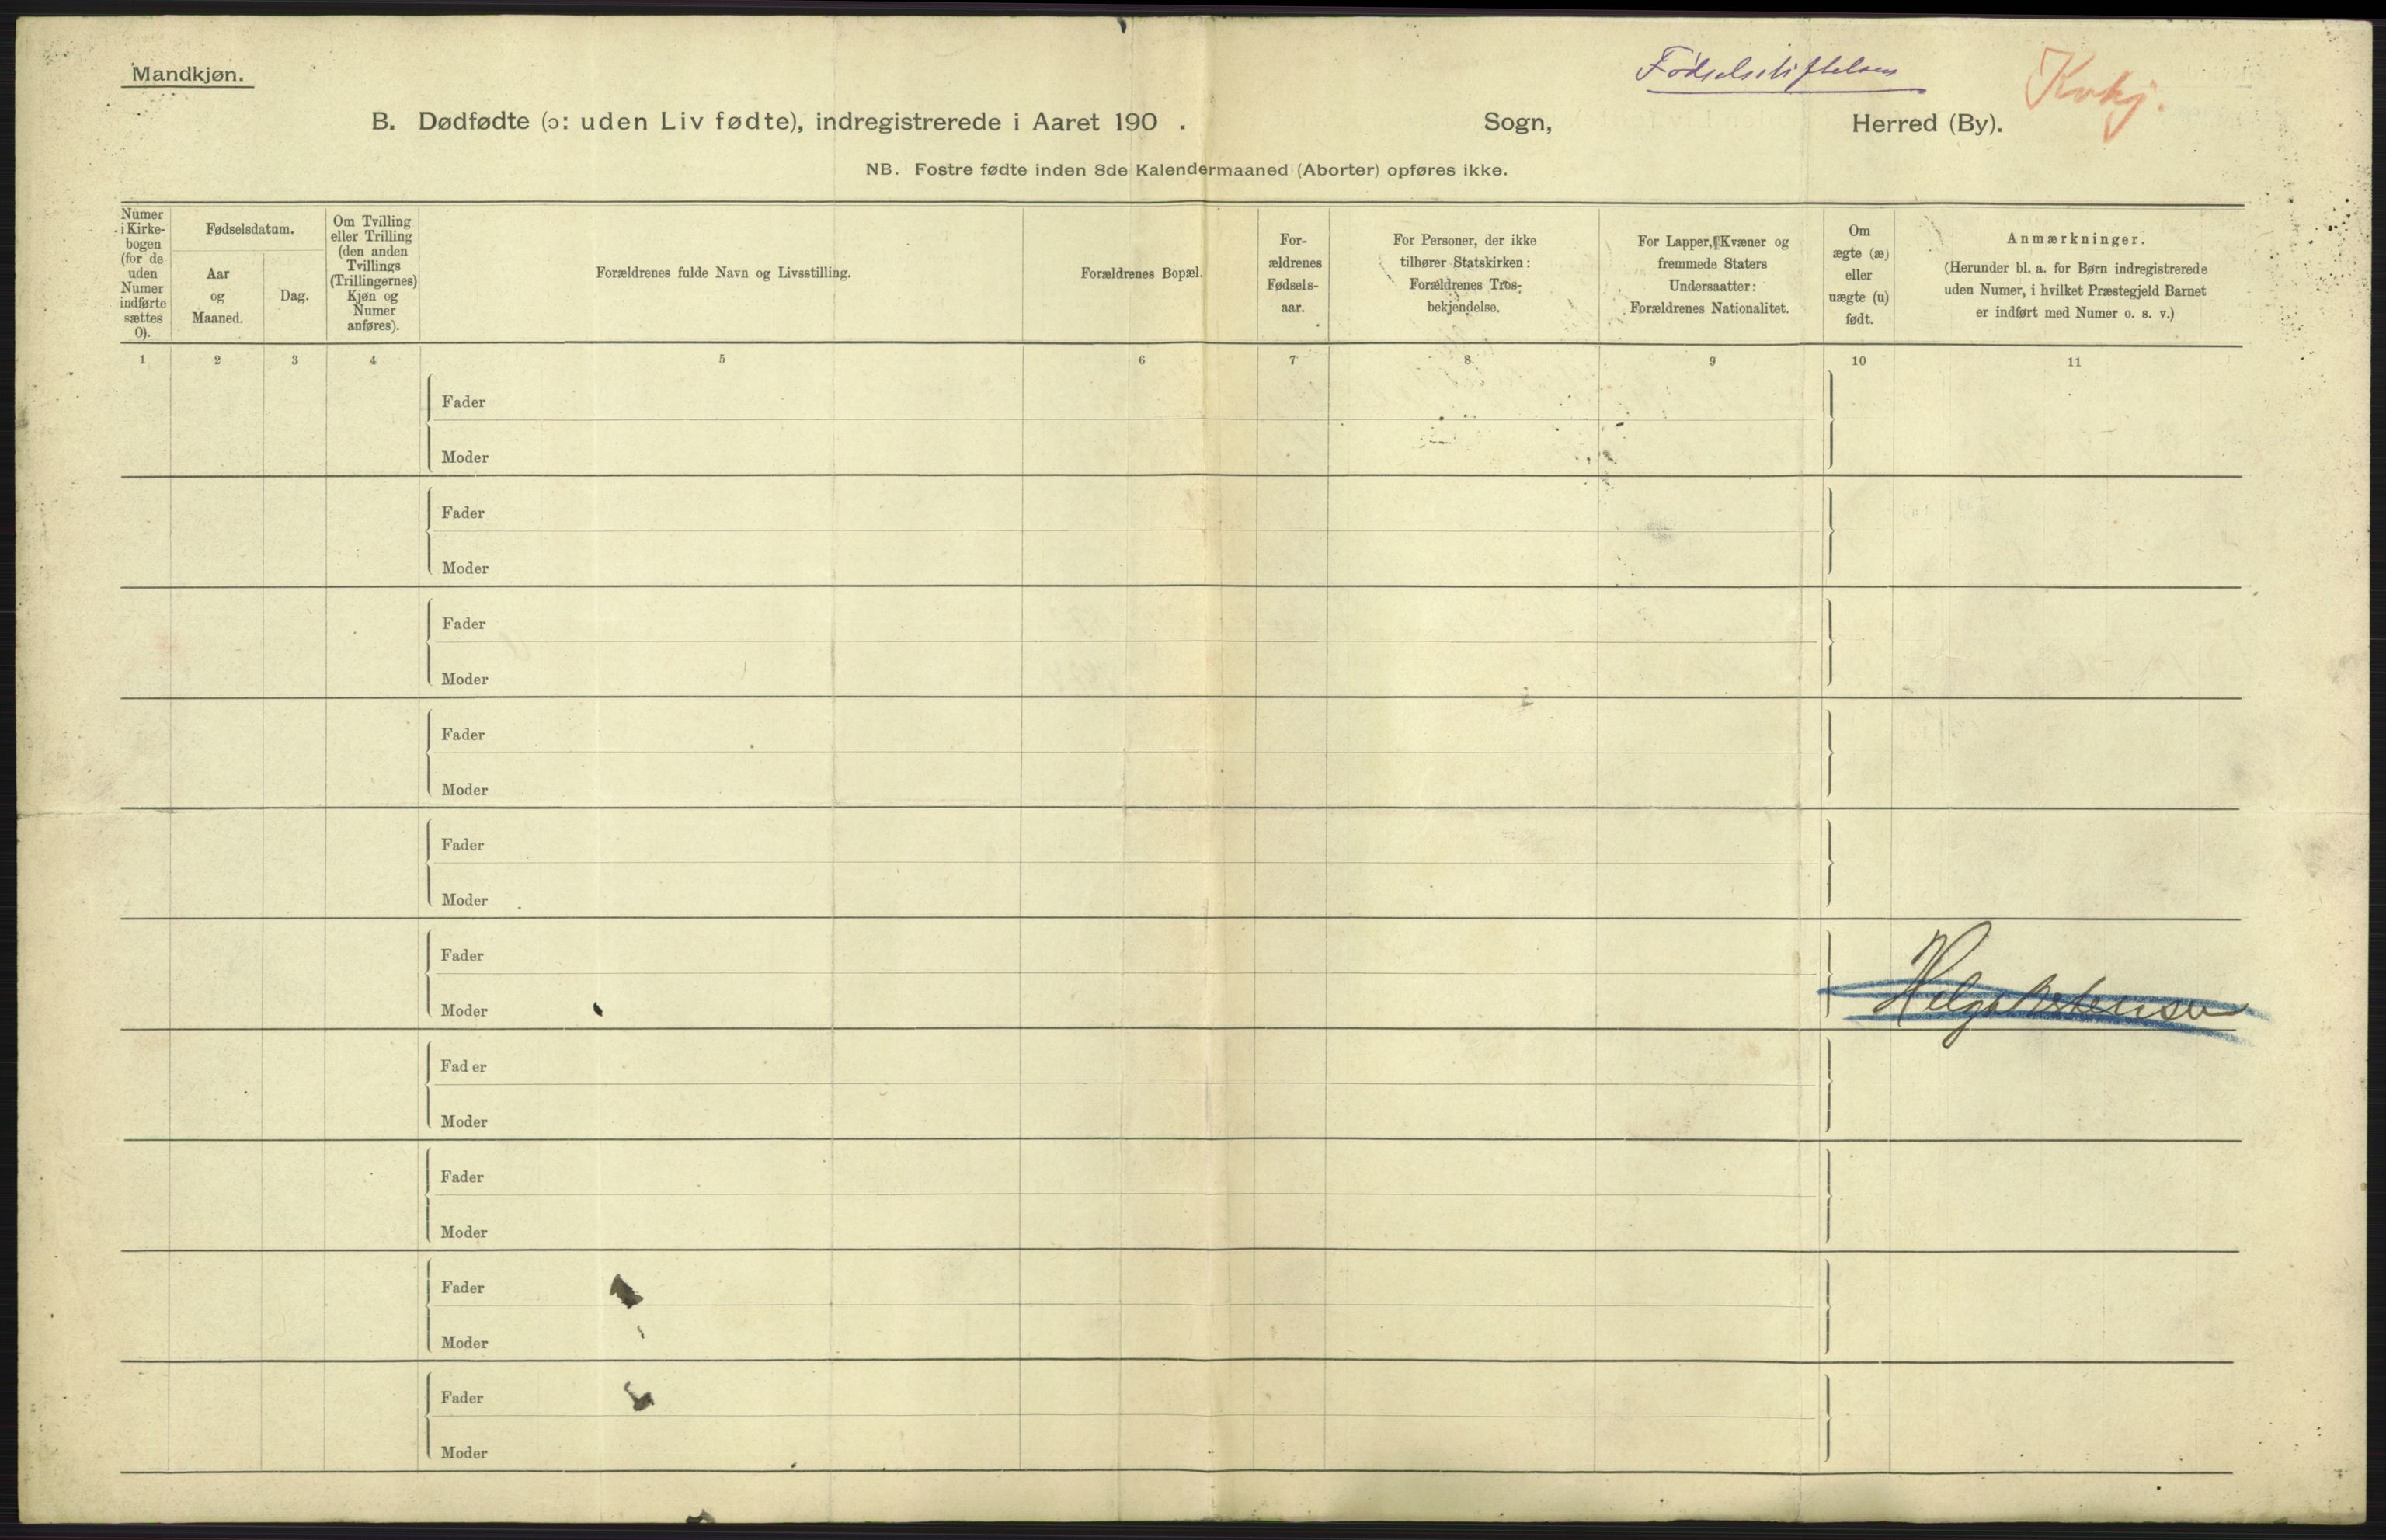 Mandkjøn.
Fødselsstiftelsen
B. Dødfødte (ɔ: uden Liv fødte), indregistrerede i Aaret 190 . Sogn, Herred (By).
NB. Fostre fødte inden 8de Kalendermaaned (Aborter) opføres ikke.
Numer
i Kirke-
bogen
(for de
uden
Numer
indførte
sættes
0).
Fødselsdatum.
Aar
og
Maaned.
Dag.
Om Tvilling
eller Trilling
(den anden
Tvillings
(Trillingernes)
Kjøn og
Numer
anføres).
Forældrenes fulde Navn og Livsstilling.
Forældrenes Bopæl.
For-
ældrenes
Fødsels-
aar.
For Personer, der ikke
tilhører Statskirken:
Forældrenes Tros-
bekjendelse.
For Lapper, Kvæner og
fremmede Staters
Undersaatter:
Forældrenes Nationalitet.
Om
ægte (æ)
eller
uægte (u)
født.
Anmærkninger.
(Herunder bl. a. for Børn indregistrerede
uden Numer, i hvilket Præstegjeld Barnet
er indført med Numer o. s. v.)
1 2 3 4 5 6 7 8. 9 10 11
Fader
Moder
Fader
Moder
Fader
Moder
Fader
Moder
Fader
Moder
Fader
Moder
Fader
Moder
Fader
Moder
Fader
Moder
Fader
Moder